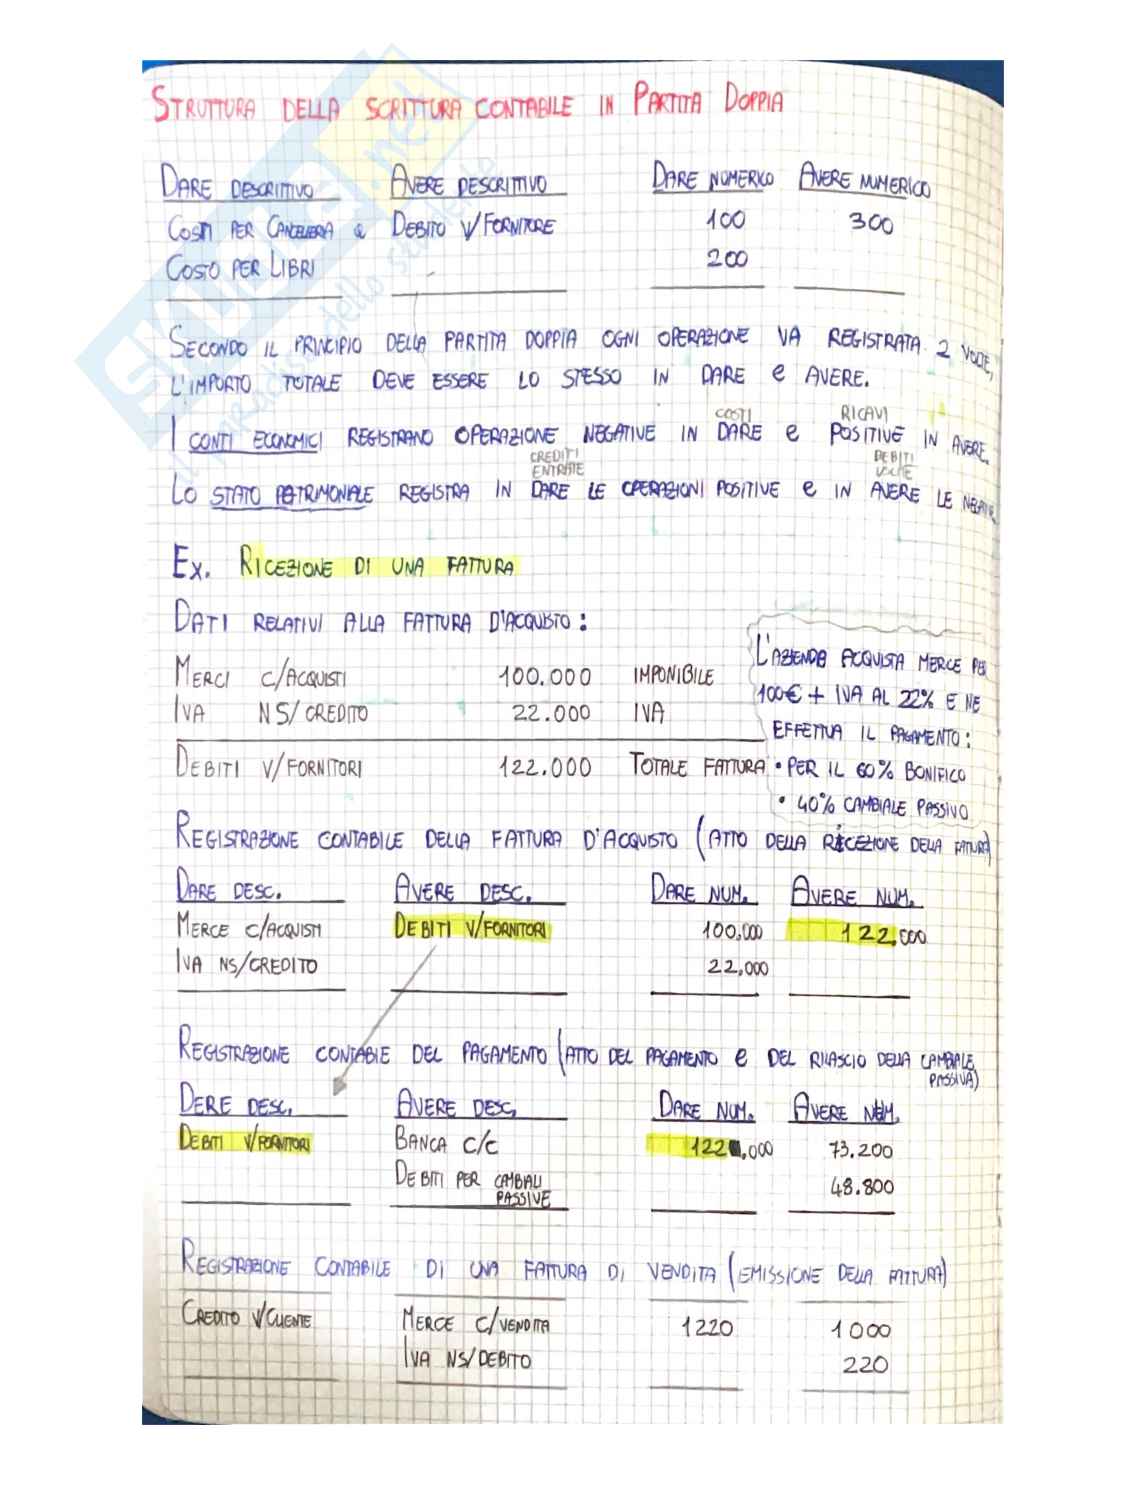 STRUTTURA DELLA SCRITTURA CONTABILE IN PARTITA DOPPIA
DARE DESCRITTIVO AVERE DESCRITTIVO DARE NUMERICO AVERE NUMERICO
COSTI PER CANCELLERIA & DEBITO V/FORNITORE 100 300
COSTO PER LIBRI 200
SECONDO IL PRINCIPIO DELLA PARTITA DOPPIA OGNI OPERAZIONE VA REGISTRATA 2 VOLTE,
L'IMPORTO TOTALE DEVE ESSERE LO STESSO IN DARE e AVERE.
COSTI RICAVI
I CONTI ECONOMICI REGISTRANO OPERAZIONE NEGATIVE IN DARE e POSITIVE IN AVERE.
CREDITI ENTRATE DEBITI USCITE
LO STATO PATRIMONALE REGISTRA IN DARE LE OPERAZIONI POSITIVE e IN AVERE LE NEGATIVE
Ex. RICEZIONE DI UNA FATTURA
DATI RELATIVI ALLA FATTURA D'ACQUISTO:
MERCI C/ACQUISTI 100.000 IMPONIBILE
IVA NS/CREDITO 22.000 IVA
DEBITI V/FORNITORI 122.000 TOTALE FATTURA
L'AZIENDA ACQUISTA MERCE PER
100€ + IVA AL 22% E NE
EFFETTUA IL PAGAMENTO:
• PER IL 60% BONIFICO
• 40% CAMBIALE PASSIVO
REGISTRAZIONE CONTABILE DELLA FATTURA D'ACQUISTO (ATTO DELLA RICEZIONE DELLA FATTURA)
DARE DESC. AVERE DESC. DARE NUM. AVERE NUM.
MERCE C/ACQUISTI DEBITI V/FORNITORI 100,000 122,000
IVA NS/CREDITO 22,000
REGISTRAZIONE CONTABIE DEL PAGAMENTO (ATTO DEL PAGAMENTO e DEL RILASCIO DELLA CAMBIALE
PASSIVA)
DERE DESC. AVERE DESC. DARE NUM. AVERE NUM.
DEBITI V/FORNITORI BANCA C/C 122,000 73.200
DEBITI PER CAMBIALI 48.800
PASSIVE
REGISTRAZIONE CONTABILE DI UNA FATTURA DI VENDITA (EMISSIONE DELLA FATTURA)
CREDITO V/CLIENTE MERCE C/VENDITA 1220 1000
IVA NS/DEBITO 220
SKUOLA.net
il paradiso dello studente